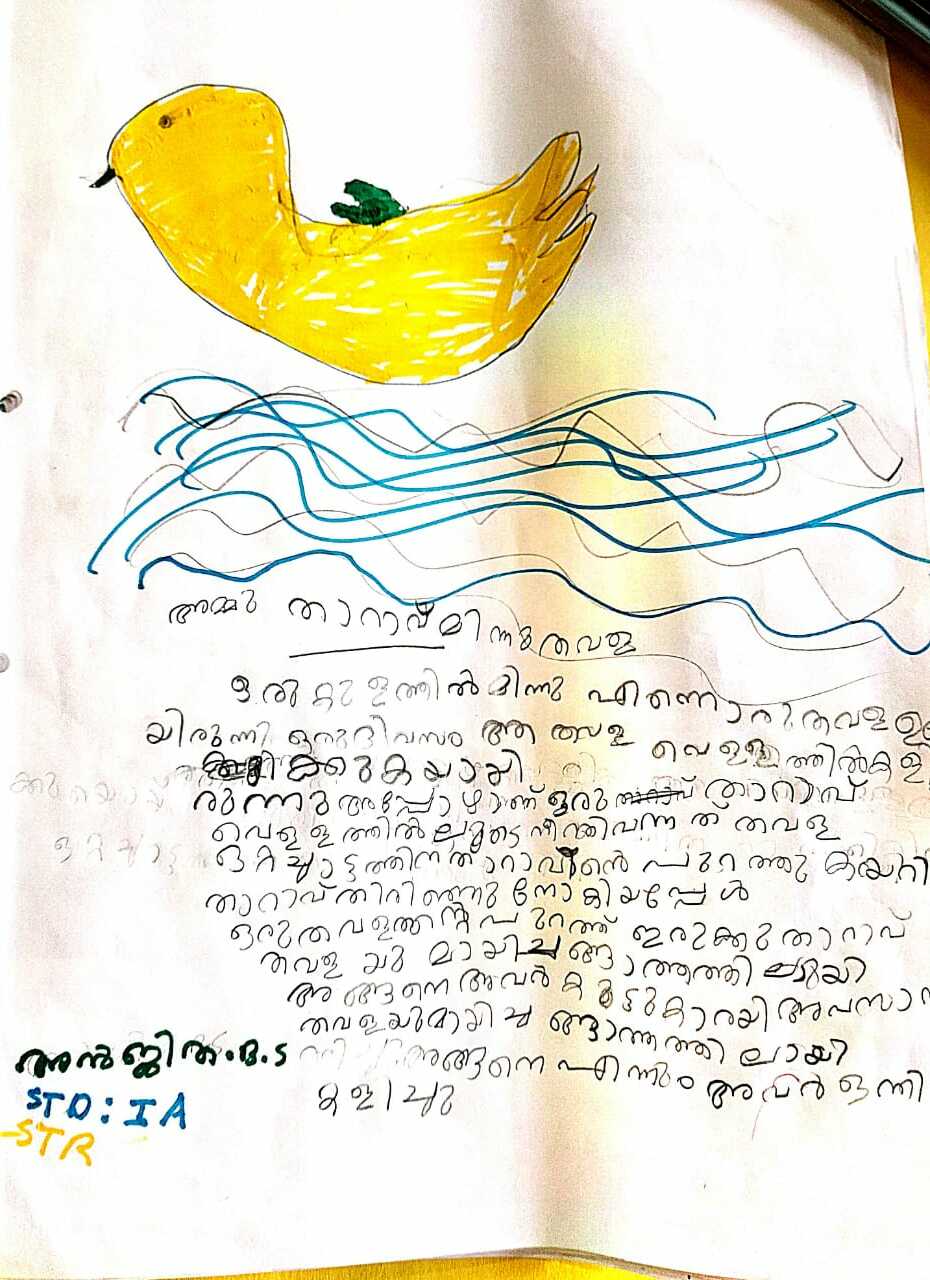 അമ്മു താറാവ് മിന്നു തവള
ഒരു കുളത്തിൽ മിന്നു എന്നൊരു തവള ഉ
യിരുന്നു ഒരു ദിവസം ആ തവള വെള്ളത്തിൽ കളി
ക്കുകയായി
രുന്നു അപ്പോഴാണ് ഒരു താറാവ്
വെള്ളത്തിൽ ലൂടെ നീന്തി വന്ന ത തവള
ഒറ്റച്ചാട്ടത്തിന് താറാവിൻെ പുറത്തു കയറി
താറാവ് തിരിഞ്ഞു നോകിയപ്പേൾ
ഒരു തവള തൻ്റ പുറത്ത് ഇരുക്കു താറാവ്
തവള യു മായി ച ങ്ങാത്തത്തി ലുയി
അങ്ങനെ അവർ കുട്ടുകാറയി അവസാന
തവളയുമായി ച ങ്ങാത്തത്തി ലായി
അങ്ങനെ എന്നും അവർ ഒന്നി
കളിച്ചു
STD : I A
STR